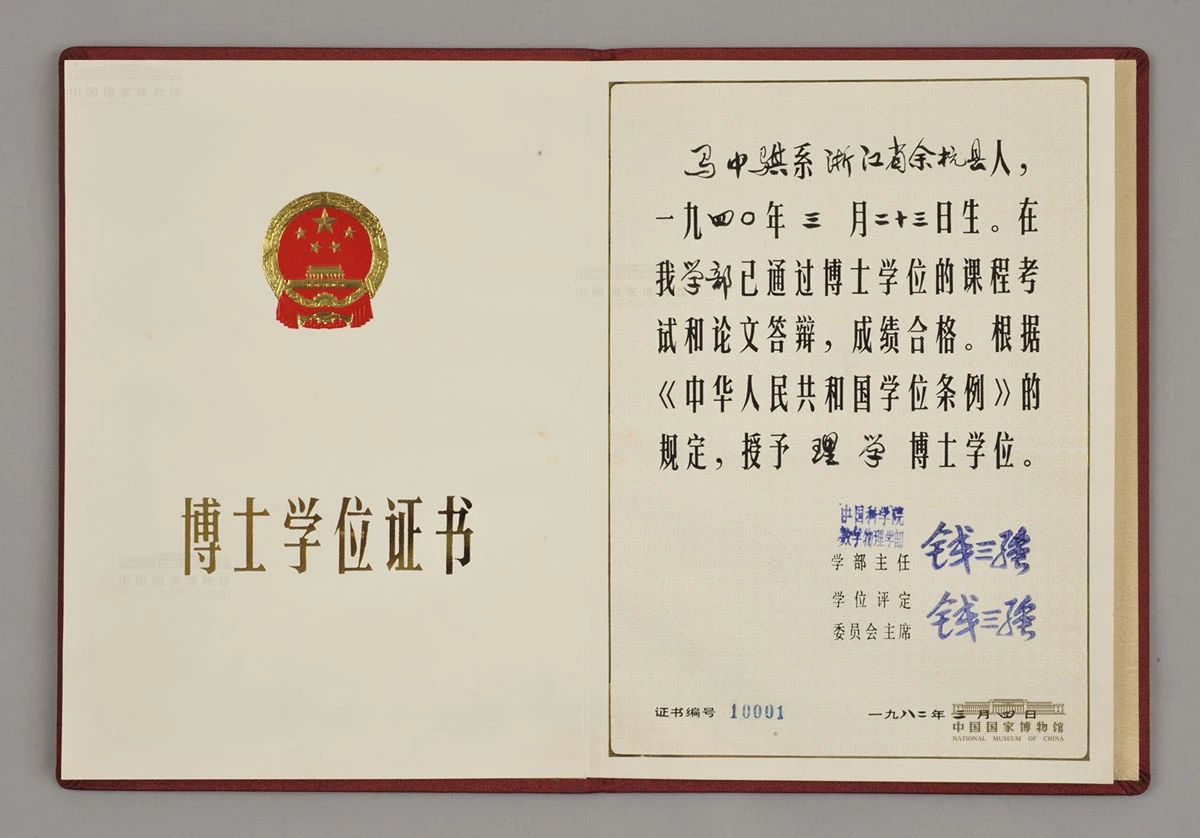 中国国家博物馆
NATIONAL MUSEUM OF CHINA
博士学位证书
中国国家博物馆
NATIONAL MUSEUM OF CHINA
马中骐系浙江省余杭县人，
一九四〇年三月二十三日生。在
我学部已通过博士学位的课程考
试和论文答辩，成绩合格。根据
《中华人民共和国学位条例》的
规定，授予理学博士学位。
中国国家博物馆
中国科学院
数学物理学部
学部主任 钱三强
学位评定
委员会主席 钱三强
证书编号 10001 一九八二年三月四日
中国国家博物馆
NATIONAL MUSEUM OF CHINA